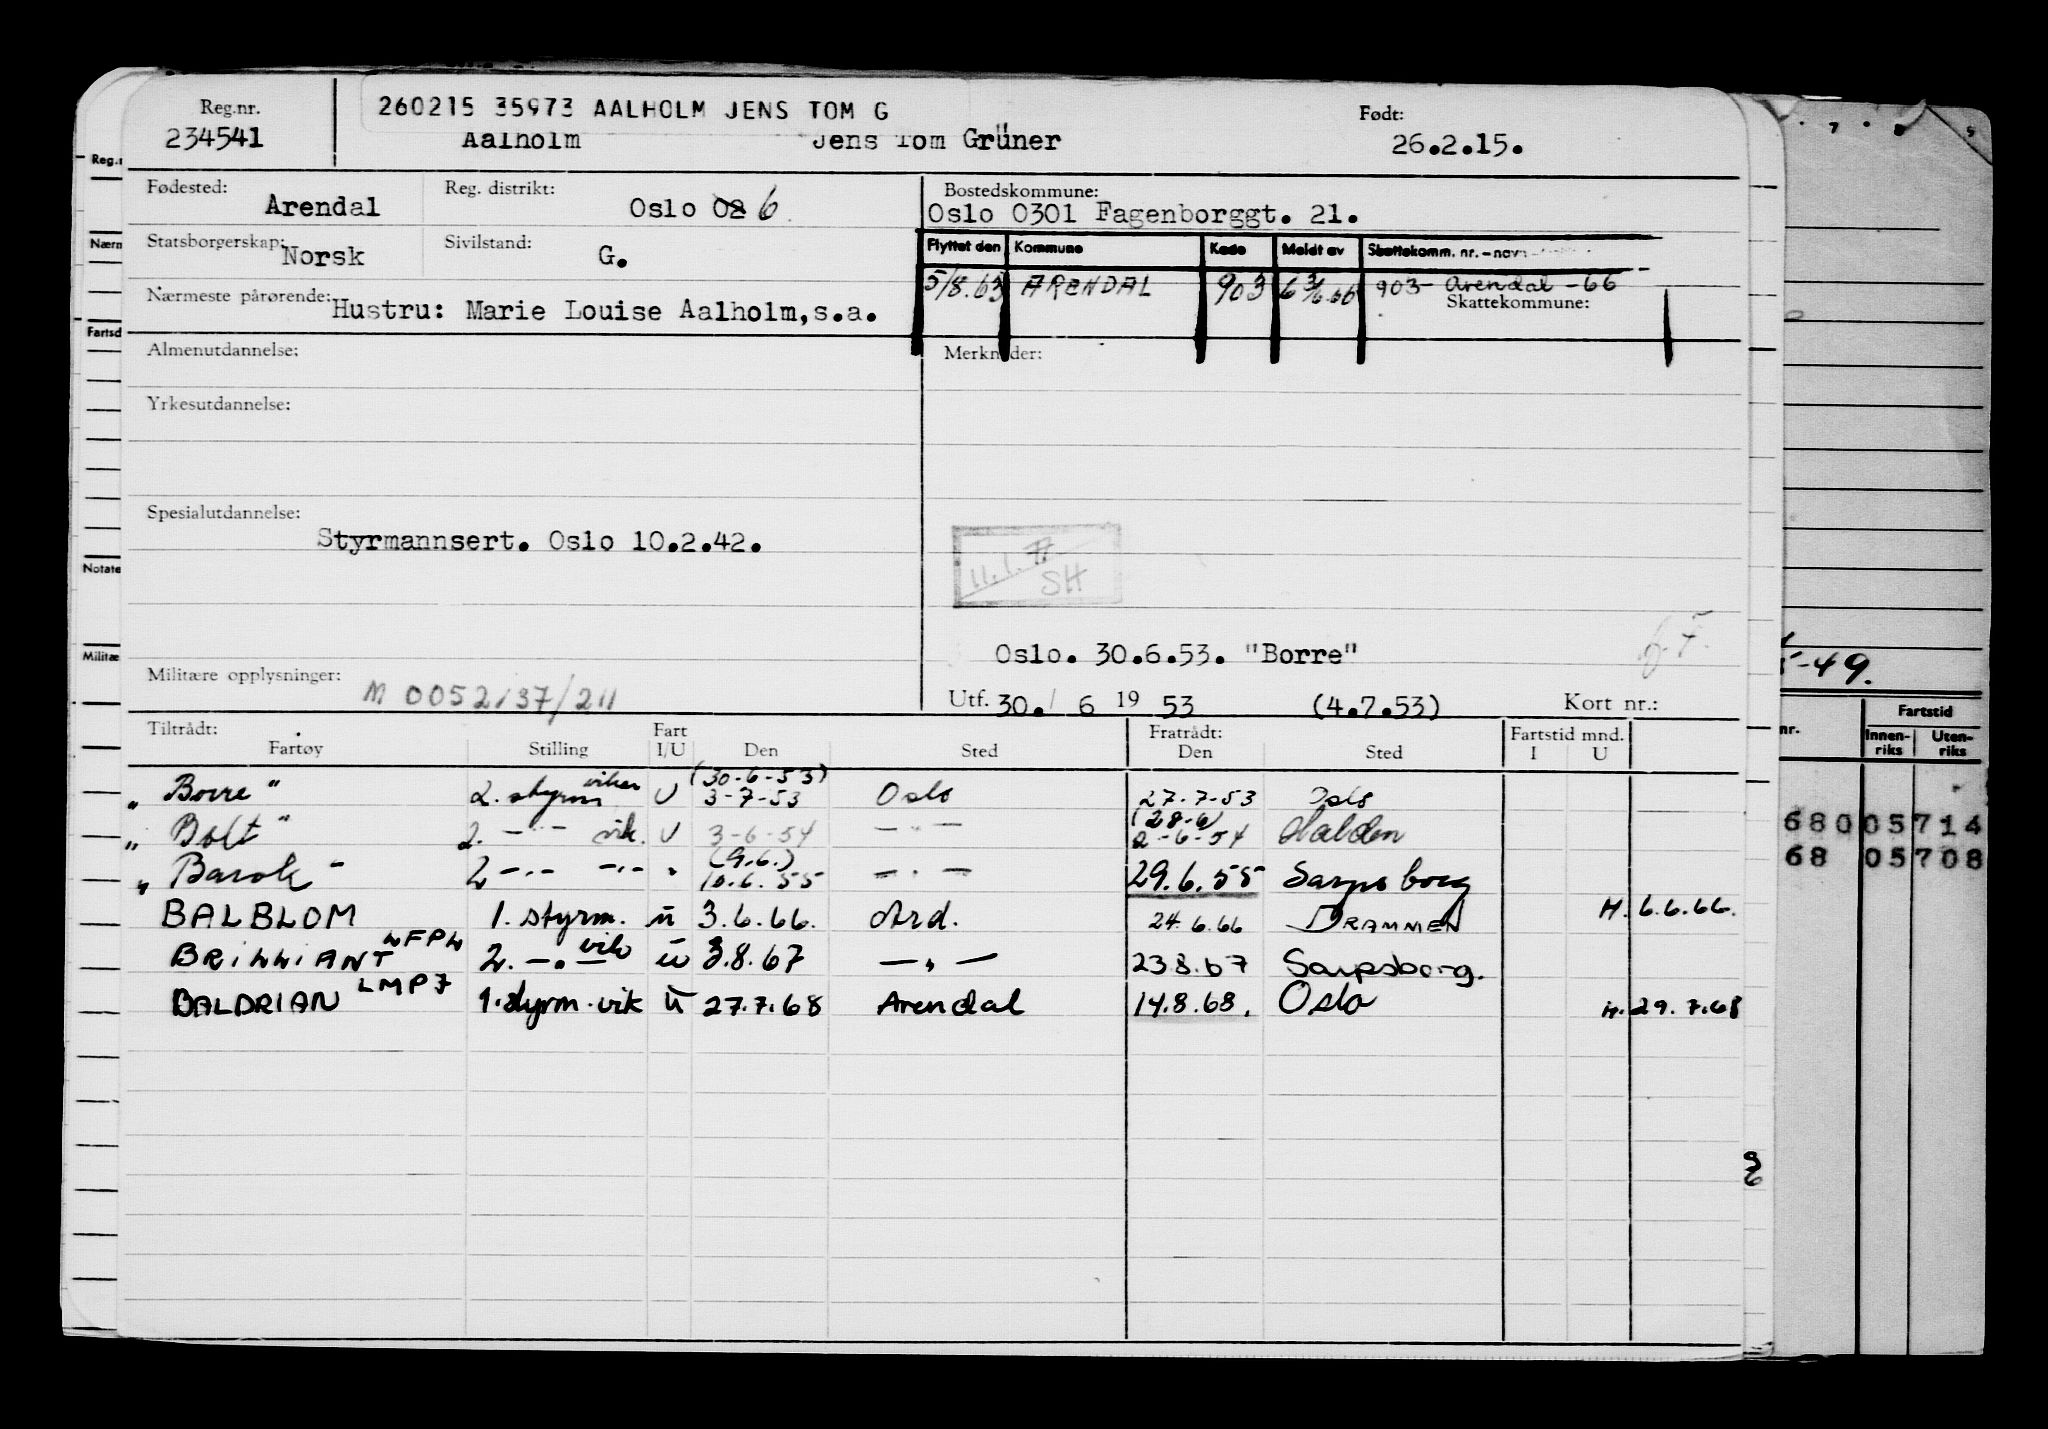 Reg.nr.
260215 35973 AALHOLM JENS TOM G
Født:
234541
Aalholm Jens Tom Grüner
26.2.15.
Fødested: Arendal
Reg. distrikt: Oslo 02 6
Bostedskommune:
Oslo 0301 Fagenborggt. 21.
Statsborgerskap: Norsk
Sivilstand: G.
Flyttet den Kommune Kode Meldt av Skattekomm. nr. - navn
5/8.63 ARENDAL 903 903 Arendal -66
Nærmeste pårørende: Hustru: Marie Louise Aalholm, s.a.
Skattekommune:
Almenutdannelse:
Merknader:
Yrkesutdannelse:
Spesialutdannelse:
Styrmannsert. Oslo 10.2.42.
11.1.77
SH
Oslo. 30.6.53. "Borre"
Militære opplysninger: M 0052/37/211
Utf. 30. 6 19 53 (4.7.53) Kort nr.:
Tiltrådt: Fart Fratrådt: Fartstid mnd.
Fartøy Stilling I/U Den Sted Den Sted I U
(30-6-53)
" Borre " 2. styrm vikar U 3-7-53 Oslo 27.7-53 Oslo
(28-6)
" Bolt " 2. -"- vik. U 3-6-54 -"- 2-6-54 Halden
(9.6.)
" Barok " 2 -"- -"- " 10.6.55 -"- 29.6.55 Sarpsborg
BALBLOM 1. styrm. u 3.6.66. Ard. 24.6.66 DRAMMEN H. 6.6.66.
BRILLIANT LFPL 2. -"- vik u 3.8.67 -"- 23.8.67 Sarpsborg.
BALDRIAN LMPJ 1. styrm. vik u 27.7.68 Arendal 14.8.68. Oslo H. 29.7.68
Reg.n
Nærm
Fartsd
Notate
Militæ
-49.
nr. Fartstid
Innen-riks Uten-riks
680 05714
68 05708